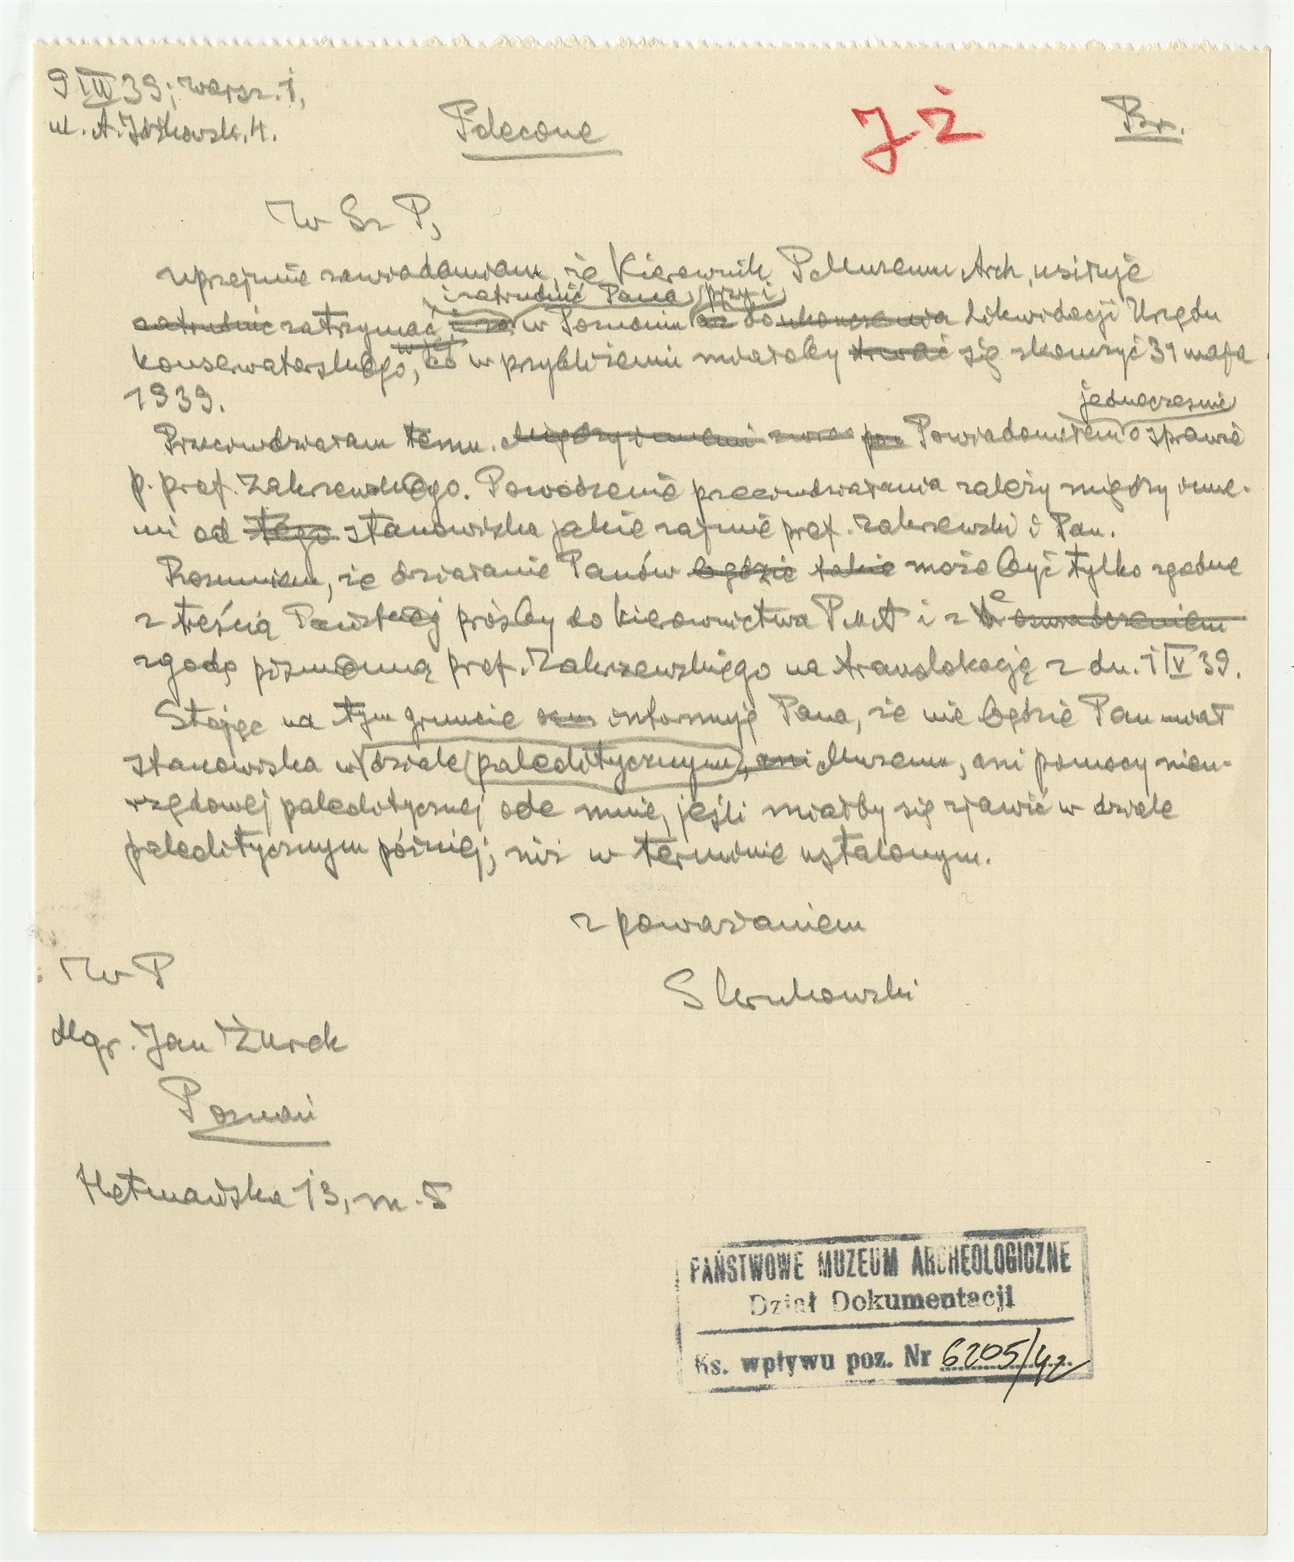 9 III 39; Warsz. 1,
ul. A. Jótkowsk. 4.
Polecone
JŻ
Br.
W Sz P,
uprzejmie zawiadamiam, że Kierownik P. Muzeum Arch, usiłuje
i zatrudnić Pana przy i
zatrudnić zatrzymać w Poznaniu do ukończenia likwidacji Urzędu
konserwatorskiego, co w przybliżeniu miałoby trwać się skończyć 31 maja
1939.
jednocześnie
Przeciwdziałam temu. Między innemi Powiadomiłem o sprawie
p. prof. Zakrzewskiego. Powodzenie przeciwdziałania zależy między inne-
mi od tego stanowiska jakie zajmie prof. Zakrzewski i Pan.
Rozumiem, że działanie Panów będzie takie może być tylko zgodne
z treścią Pańskiej prośby do kierownictwa PMA i z oświadczeniem
zgodą piśmienną prof. Zakrzewskiego na translokację z dn. 1 IV 39.
Stojąc na tym gruncie informuję Pana, że nie będzie Pan miał
stanowiska w dziale paleolitycznym, ani Muzeum, ani pomocy nieu-
rzędowej paleolitycznej ode mnie, jeśli miałby się zjawić w dziale
paleolitycznym później, niż w terminie ustalonym.
z poważaniem
S Krukowski
W P
Mgr. Jan Żurek
Poznań
Hetmańska 13, m. 5
PAŃSTWOWE MUZEUM ARCHEOLOGICZNE
Dział Dokumentacji
Ks. wpływu poz. Nr 6205/42